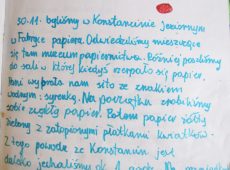 30.11. byliśmy w Konstancinie Jeziornym
w Fabryce papieru. Odwiedziliśmy mieszczące
się tam muzeum papiernictwa. Później poszliśmy
do sali w której kiedyś czerpało się papier.
Pani wyjęła nam sito ze znakiem
wodnym, syrenką. Na początku zrobiliśmy
sobie zwykły papier. Potem papier róży
zielony z zatopionymi płatkami kwiatków.
Z tego powodu że Konstancin jest
daleko jechaliśmy ok 1 godz.